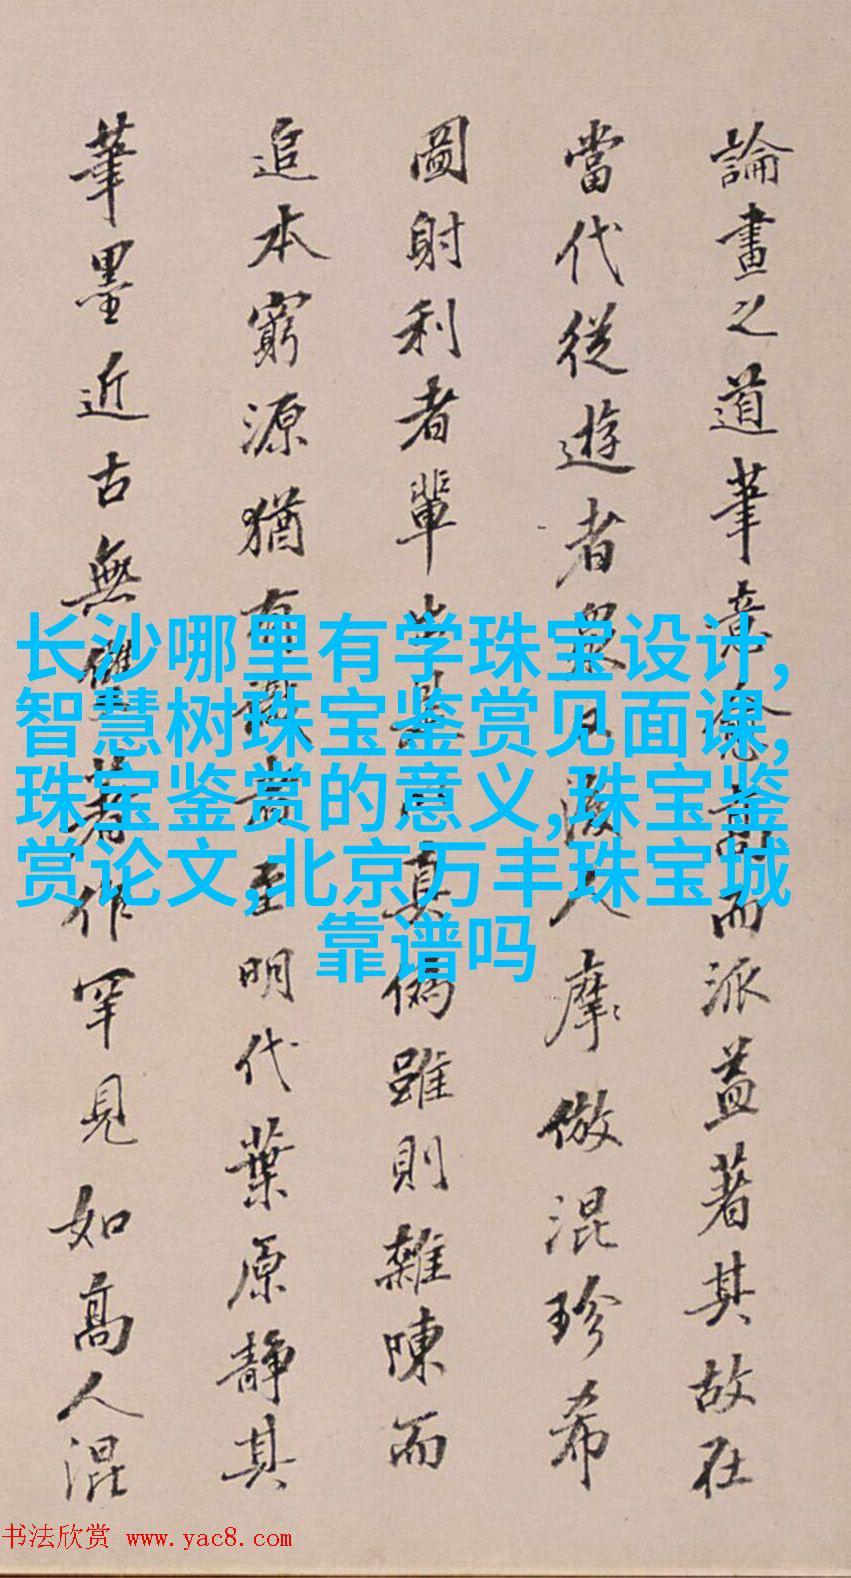 論畫之道筆意
而派益著其故在
當代從遊者眾
人摩倣混珍希
圖射利者輩出
真偽雖則雜陳而
追本窮源猶有
至明代葉原靜其
筆墨近古無雙
著作罕見如高人混
长沙哪里有学珠宝设计,
智慧树珠宝鉴赏见面课,
珠宝鉴赏的意义,珠宝鉴
赏论文,北京万丰珠宝城
靠谱吗
书法欣赏 www.yac8.com